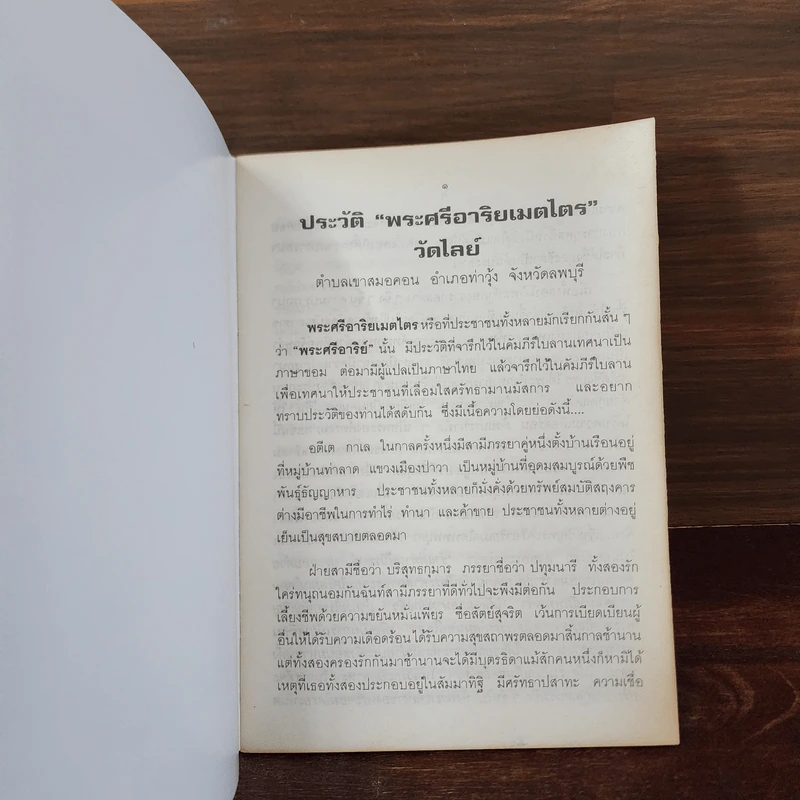 ๑
ประวัติ “พระศรีอาริยเมตไตร”
วัดไลย์
ตำบลเขาสมอคอน อำเภอท่าวุ้ง จังหวัดลพบุรี
พระศรีอาริยเมตไตร หรือที่ประชาชนทั้งหลายมักเรียกกันสั้น ๆ
ว่า “พระศรีอาริย์” นั้น มีประวัติที่จารึกไว้ในคัมภีร์ใบลานเทศนาเป็น
ภาษาขอม ต่อมามีผู้แปลเป็นภาษาไทย แล้วจารึกไว้ในคัมภีร์ใบลาน
เพื่อเทศนาให้ประชาชนที่เลื่อมใสศรัทธามานมัสการ และอยาก
ทราบประวัติของท่านได้สดับกัน ซึ่งมีเนื้อความโดยย่อดังนี้....
อตีเต กาเล ในกาลครั้งหนึ่งมีสามีภรรยาคู่หนึ่งตั้งบ้านเรือนอยู่
ที่หมู่บ้านท่าลาด แขวงเมืองปาวา เป็นหมู่บ้านที่อุดมสมบูรณ์ด้วยพืช
พันธุ์ธัญญาหาร ประชาชนทั้งหลายก็มั่งคั่งด้วยทรัพย์สมบัติสฤงคาร
ต่างมีอาชีพในการทำไร่ ทำนา และค้าขาย ประชาชนทั้งหลายต่างอยู่
เย็นเป็นสุขสบายตลอดมา
ฝ่ายสามีชื่อว่า บริสุทธกุมาร ภรรยาชื่อว่า ปทุมนารี ทั้งสองรัก
ใคร่ทนุถนอมกันฉันท์สามีภรรยาที่ดีทั่วไปจะพึงมีต่อกัน ประกอบการ
เลี้ยงชีพด้วยความขยันหมั่นเพียร ซื่อสัตย์สุจริต เว้นการเบียดเบียนผู้
อื่นให้ได้รับความเดือดร้อน ได้รับความสุขสถาพรตลอดมาสิ้นกาลช้านาน
แต่ทั้งสองครองรักกันมาช้านานจะได้มีบุตรธิดาแม้สักคนหนึ่งก็หามิได้
เหตุที่เธอทั้งสองประกอบอยู่ในสัมมาทิฐิ มีศรัทธาปสาทะ ความเชื่อ